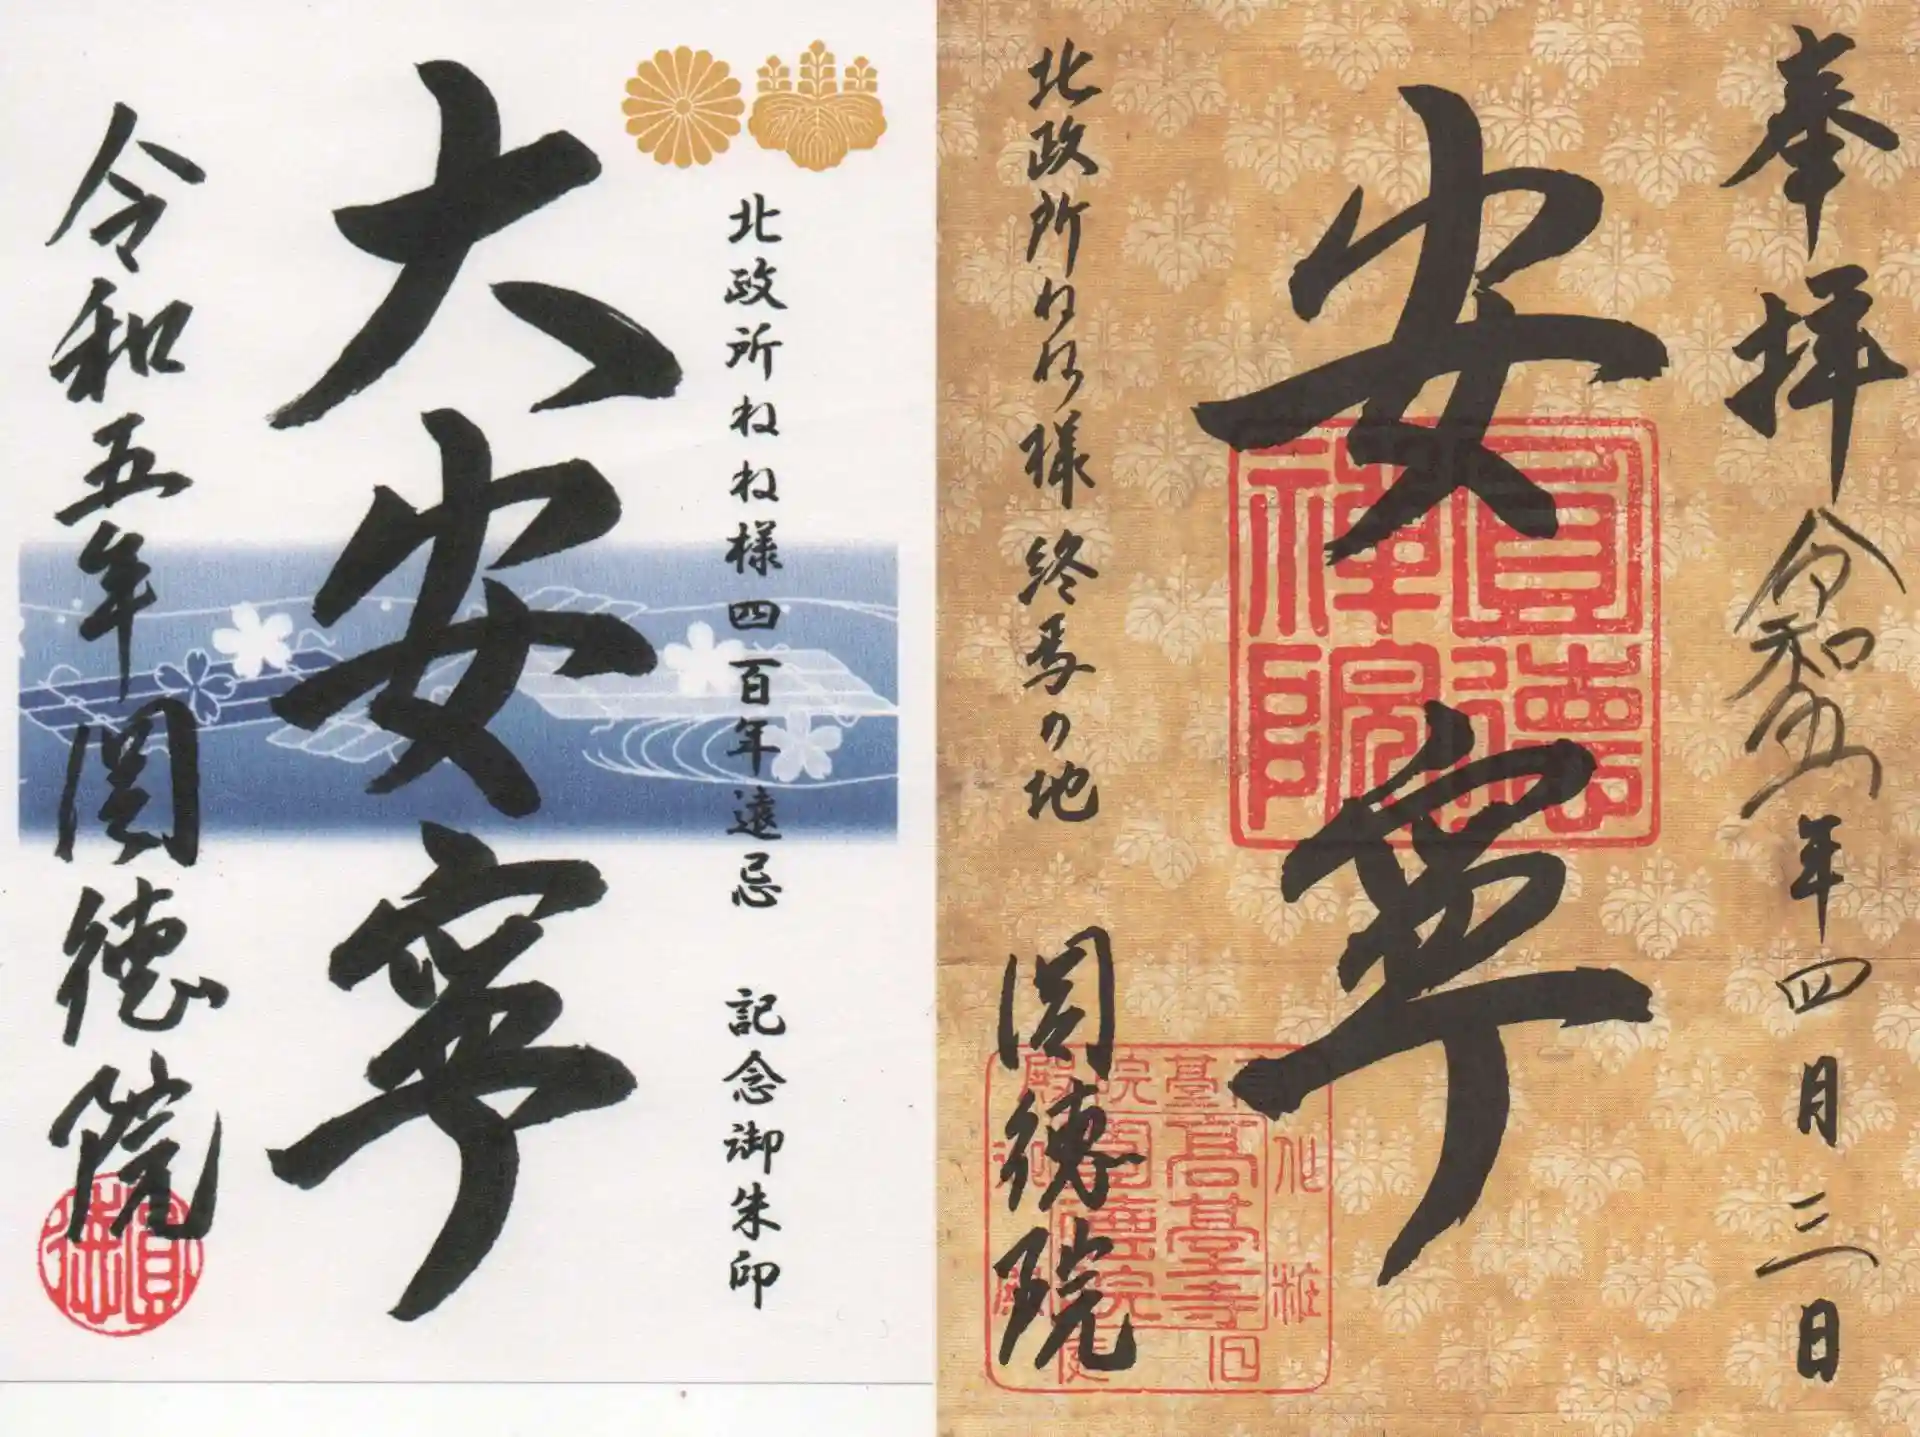 北政所ねね様四百年遠忌 記念御朱印
大安寧
令和五年 圓徳院
圓徳
奉拝 令和五年四月三日
安寧
圓徳禅院
北政所ねね様終焉の地
圓徳院
高臺寺
圓徳院
化粧